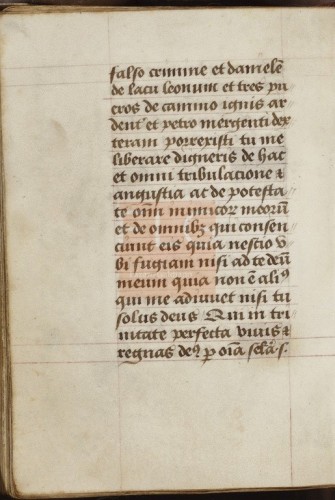 falso crimine et daniele͞
de lacu leonum et tres pu
eros de camino ignis ar
denť et petro mergenti dex
teram porrexisti tu me
liberare digneris de hac
et omni tribulacione ⁊
angustia ac de potesta
te om̅ inimicoꝝ meoru̅
et de omnibꝫ qui consen
ciunt eis quia nescio v
bi fugiam nisi ad te deu̅
meum quia non e̅ aliꝰ
qui me adiuuet nisi tu
solus deus Qui in tri
nitate perfecta viuis ⁊
regnas deꝰ p oi̅a secl̅a. s.